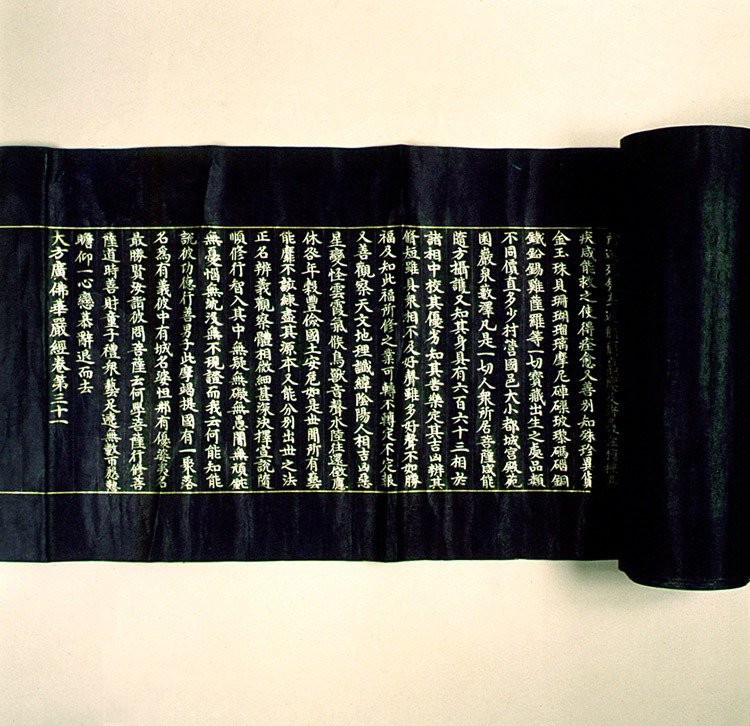 疾咸能救之使得痊愈又善別知殊珍異寶
金玉珠貝珊瑚瑠璃摩尼硨磲玻瓈碼碯銅
鐵鈆錫雞薩羅等一切寶藏出生之處品類
不同價直多少村營國邑大小都城宮殿苑
園巖泉藪澤凡是一切人眾所居菩薩咸能
隨方攝護又知其身具有六百六十三相於
諸相中校其優劣知其苦樂定其吉凶辨其
脩短雖具眾相不及好聲雖多好聲不如勝
福及知此福所修之業可轉不轉定不定報
又善觀察天文地理讖緯陰陽人相吉凶惡
星變怪雲霞氣候鳥獸音聲水陸往還徵應
休咎年穀豐儉國土安危如是世間所有藝
能靡不該練盡其源本又能分別出世之法
正名辨義觀察體相微細甚深決擇宣說隨
順修行智入其中無疑無礙無愚闇無頑鈍
無憂惱無沉沒無不現證而我云何能知能
說彼功德行善男子此摩竭提國有一聚落
名為有義彼中有城名婆怛那有優婆夷名
最勝賢汝詣彼問菩薩云何學菩薩行修菩
薩道時善財童子禮眾藝足遶無數帀慇懃
瞻仰一心戀慕辭退而去
大方廣佛華嚴經卷第三十一